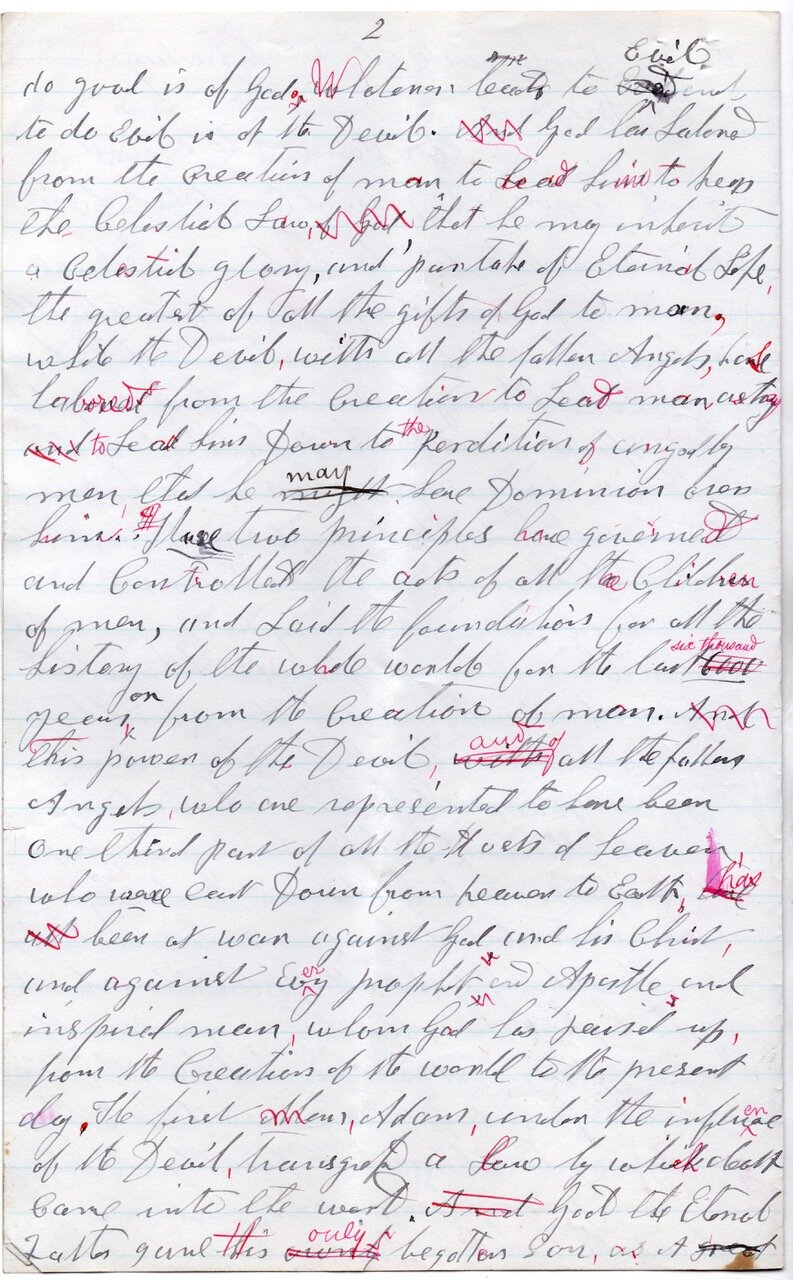 2
do good is of God. or Whatever leads to Evil and
to do Evil is of the Devil. And God has Labored
from the Creation of man to Lead him to keep
the Celestial Law, of God that he may inherit
a Celestial glory, and partake of Eternal Life,
the greatest of all the gifts of God to man,
while the Devil, with all the fallen Angels, have
labored from the Creation to Lead man astray
and to Lead him Down to the Perdition of ungodly
men that he might may have Dominion over
him. These two principles have governed
and Controlled the acts of all the Children
of men, and Laid the foundation for all the
history of the whole world for the last 6000 six thousand
years, or from the Creation of man. And
This power of the Devil, with and of all the fallen
Angels, who are represented to have been
one third part of all the Hosts of heaven,
who were cast Down from heaven to Earth, has
all been at war against God and his Christ,
and against Every prophet and Apostle, and
inspired man, whom God has raised up,
from the Creation of the world to the present
day. The first Man, Adam, under the influence
of the Devil, transgresd a Law by which death
Came into the world. And God the Eternal
Father gave this only begotten Son, as A great